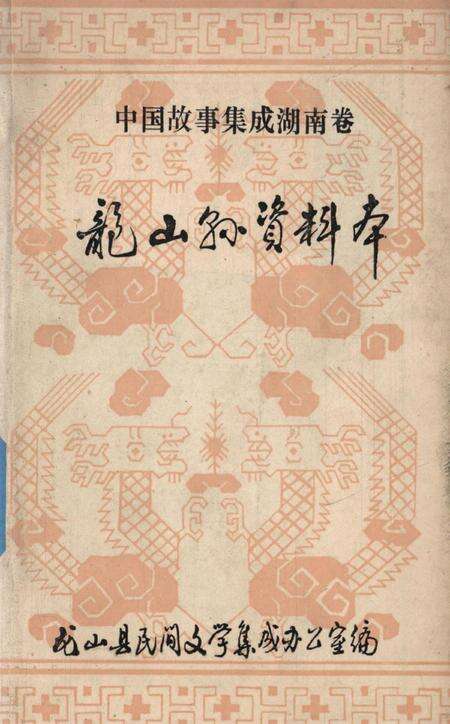 中国故事集成湖南卷
龍山縣資料本
龙山县民间文学集成办公室编